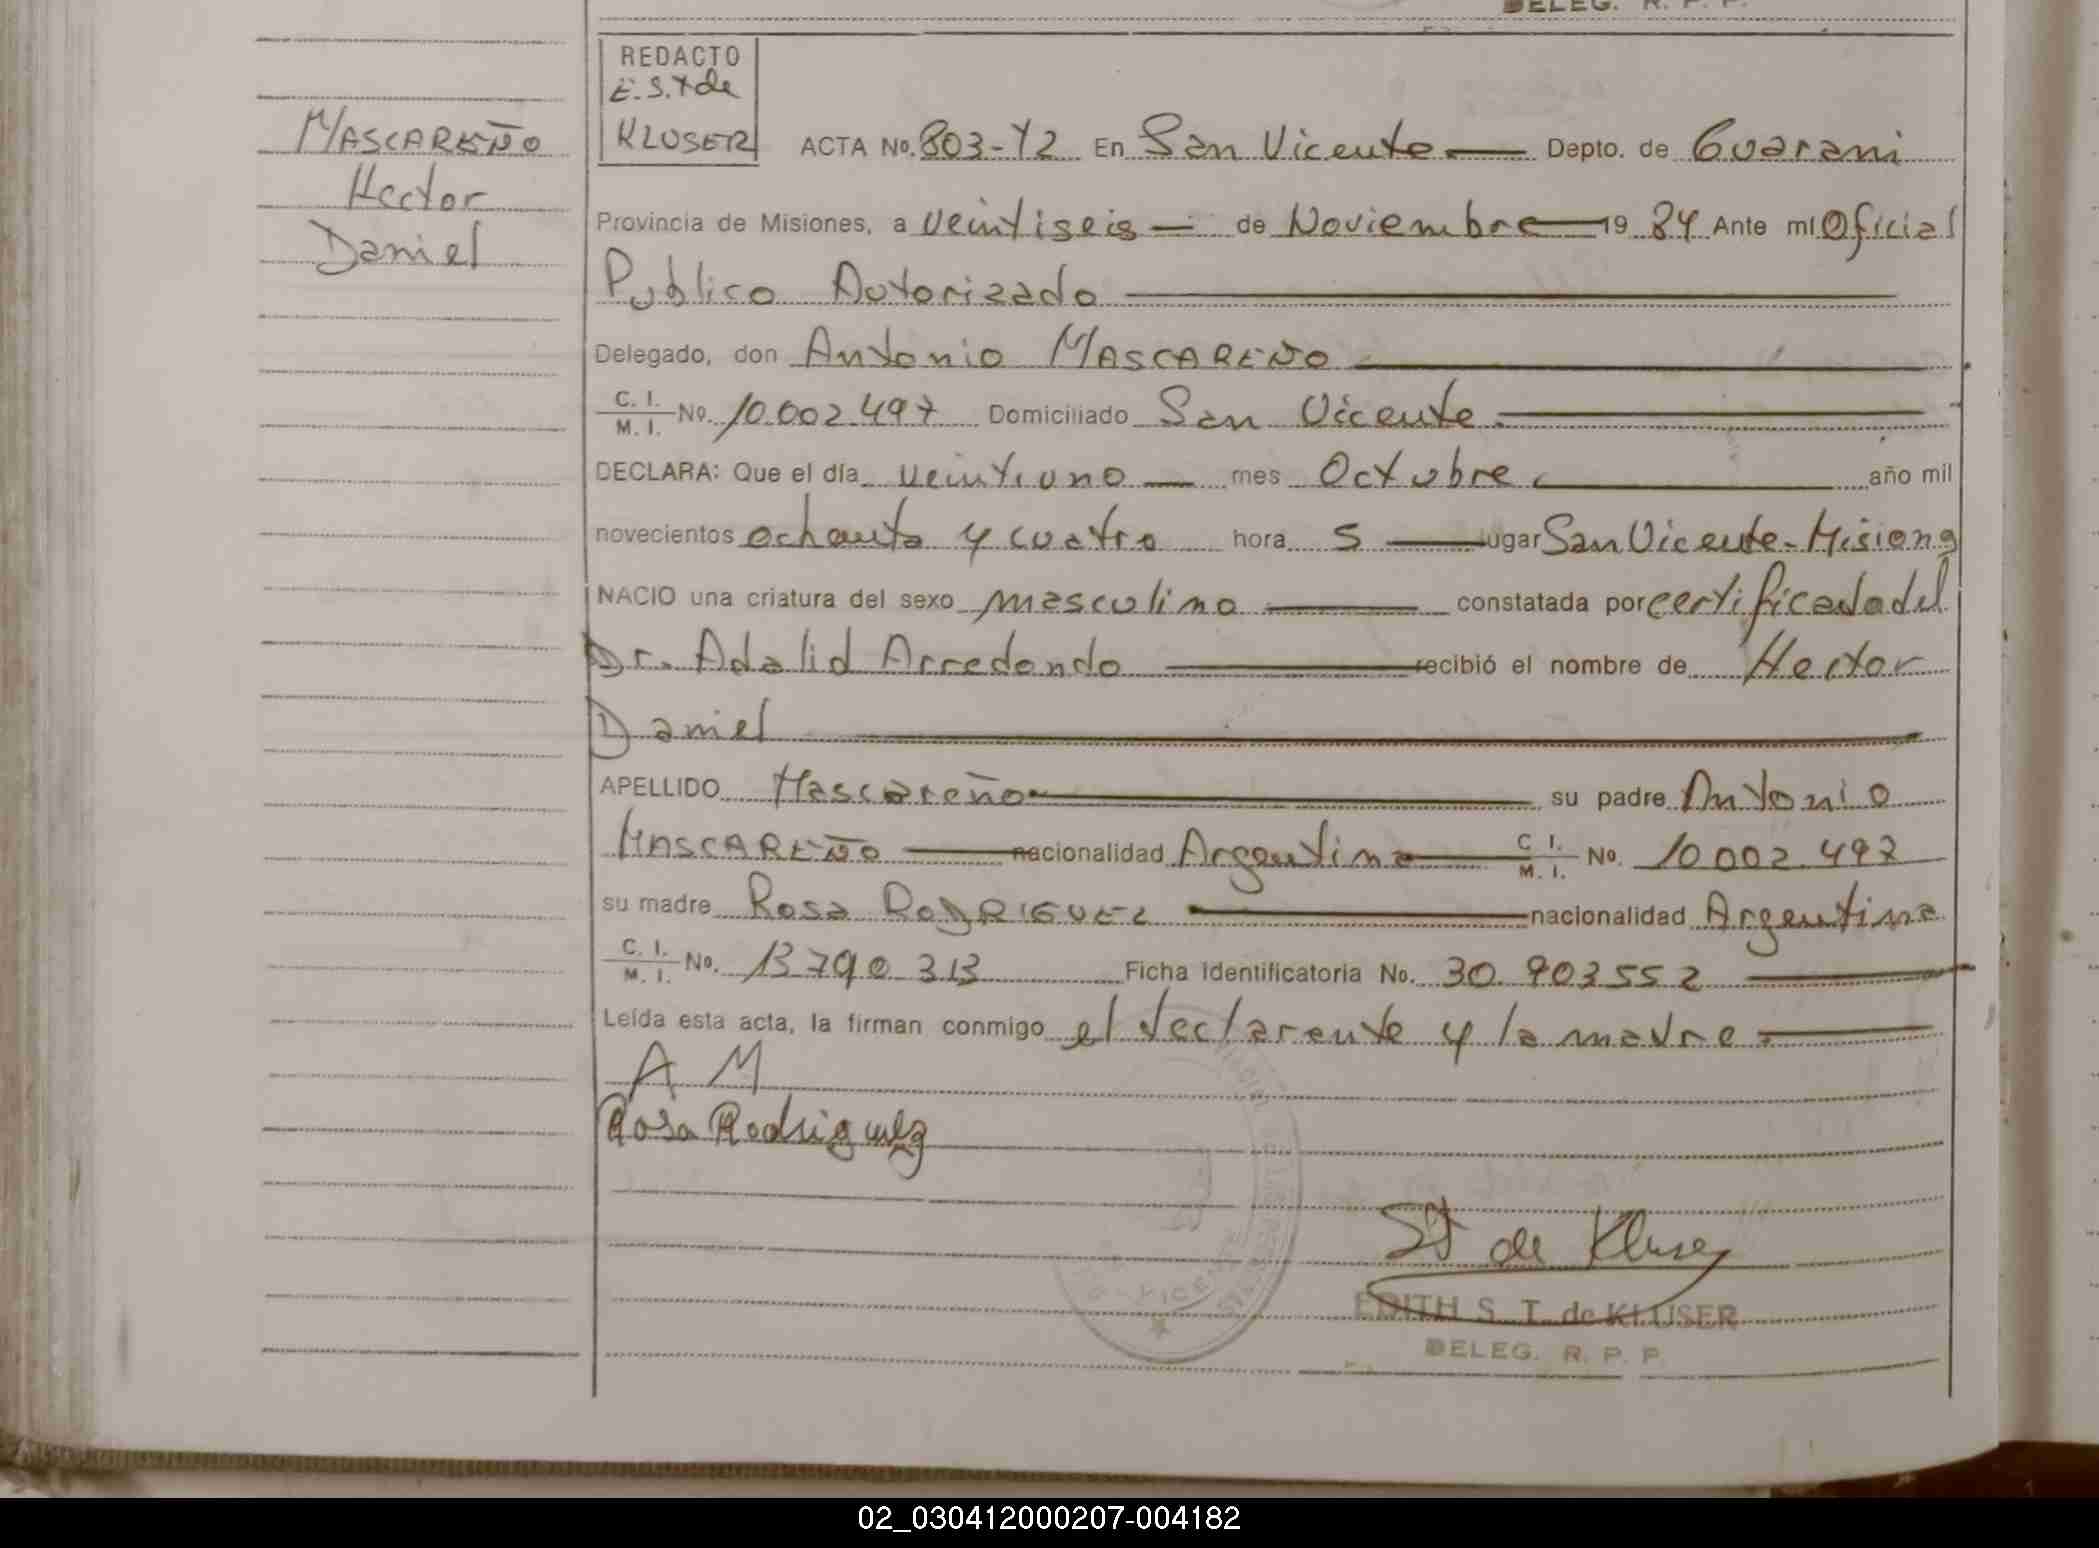 DELEG. R. P. P.
REDACTO
E.S.T de
KLUSER
MASCAREÑO
Hector
Daniel
ACTA No. 803-T2 En San Vicente Depto. de Guarani
Provincia de Misiones, a veintiseis de Noviembre 19 84 Ante mi Oficial
Publico Autorizado
Delegado, don Antonio MASCAREÑO
C. I.
M. I. No. 10.002.497 Domiciliado San Vicente
DECLARA: Que el día veintiuno mes Octubre año mil
novecientos ochenta y cuatro hora 5 lugar San Vicente-Misiones
NACIO una criatura del sexo masculino constatada por certificado del
Dr. Adalid Arredondo recibió el nombre de Hector
Daniel
APELLIDO Mascareño su padre Antonio
MASCAREÑO nacionalidad Argentina C. I.
M. I. No. 10.002.497
su madre Rosa RODRIGUEZ nacionalidad Argentina
C. I.
M. I. No. 13.790.313 Ficha Identificatoria No. 30.903552
Leída esta acta, la firman conmigo el declarante y la madre
A M
Rosa Rodriguez
ST de Kluser
EDITH S. T. de KLUSER
DELEG. R. P. P.
02_030412000207-004182